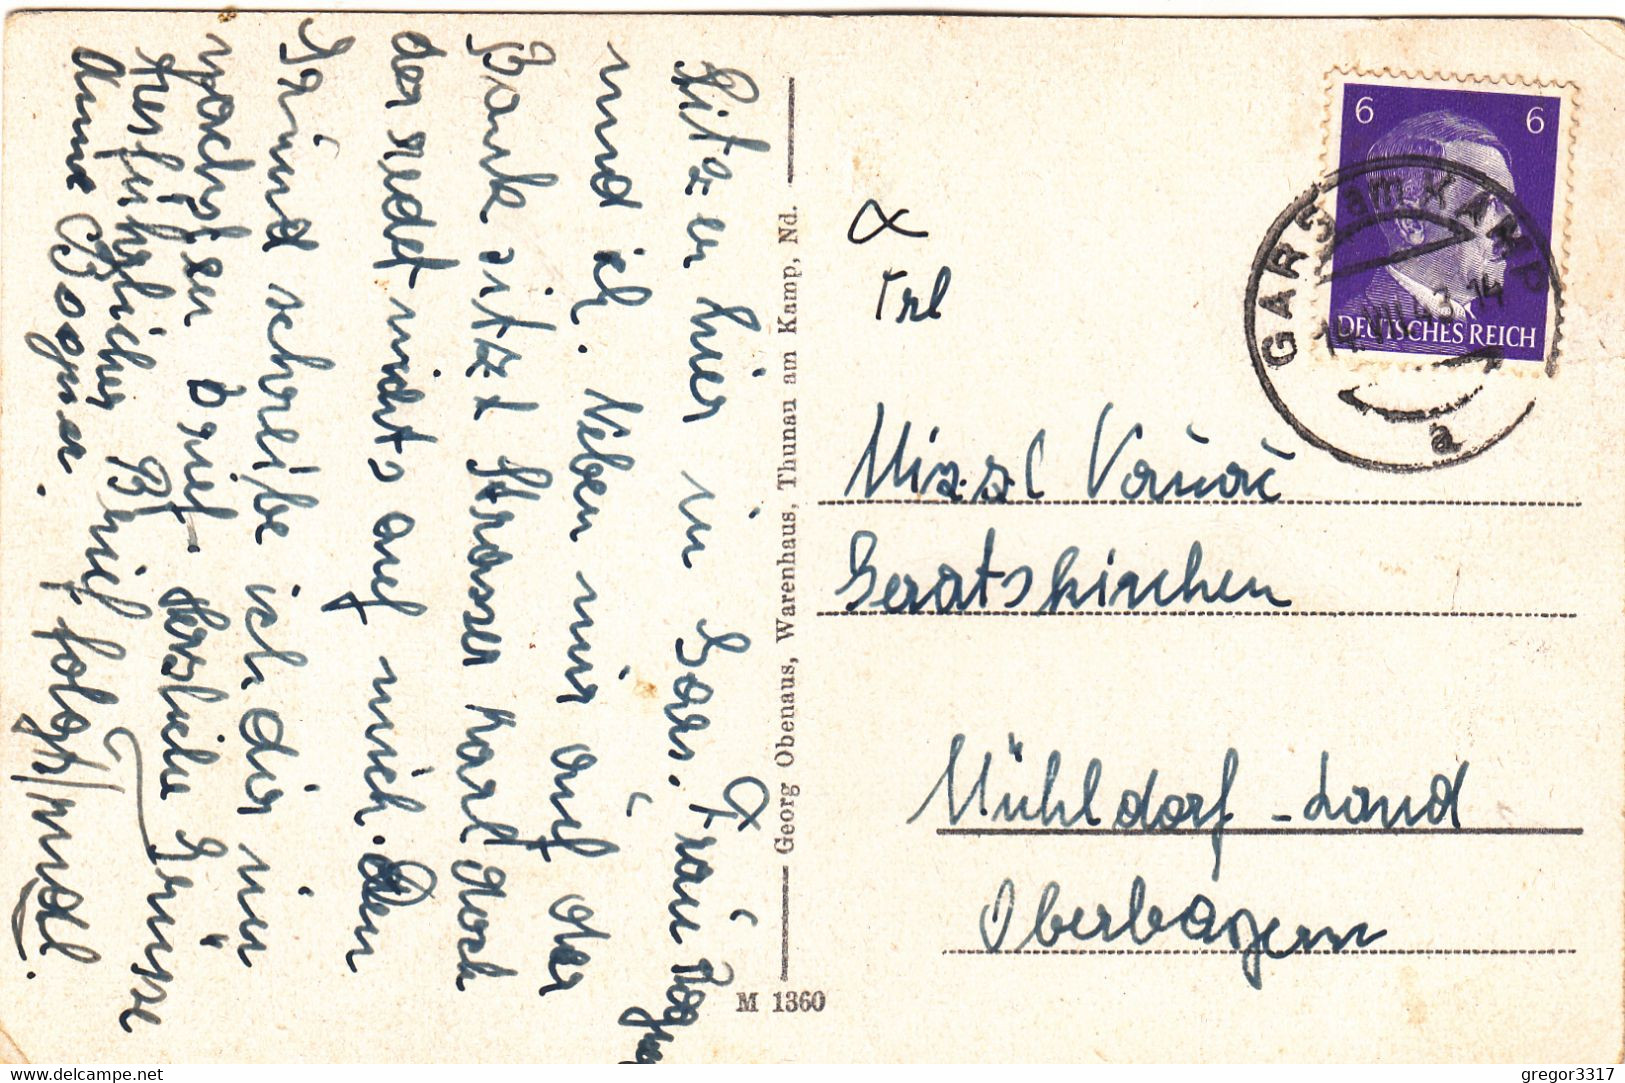 Sitze hier in Gars. Frau Bogner
und ich. Neben mir auf der
Bank sitzt Strasser Karl doch
der redet nichts auf mich. Den
Grund schreibe ich dir im
nächsten Brief. Herzliche Grüsse
Ausführlicher Brief folgt/mdl.
Anna Bogner.
Georg Obenaus, Warenhaus, Thunau am Kamp, Nd.
M 1360
Trl
6 6
DEUTSCHES REICH
GARS am KAMP
14.VII.43.14
a
Mizzl Vanac
Geratskirchen
Mühldorf-Land
Oberbayern
delcampe.net
gregor3317